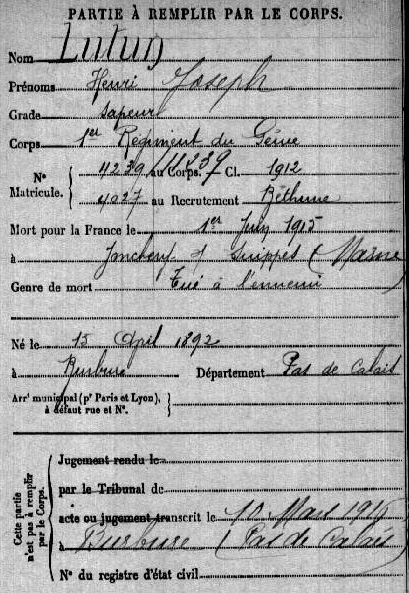 PARTIE À REMPLIR PAR LE CORPS.
Nom Lutun
Prénoms Henri Joseph
Grade sapeur
Corps 1er Régiment du Génie
N° Matricule. 4239 au Corps. Cl. 1912
4027 au Recrutement Béthune
Mort pour la France le 1er Juin 1915
à Jonchery s/ Suippes (Marne)
Genre de mort Tué à l'ennemi
Né le 15 April 1892
à Burbure Département Pas de Calais
Arrt municipal (pr Paris et Lyon), à défaut rue et N°.
Cette partie n'est pas à remplir par le Corps.
Jugement rendu le
par le Tribunal de
acte ou jugement transcrit le 10 Mars 1916
à Burbure (Pas de Calais)
N° du registre d'état civil